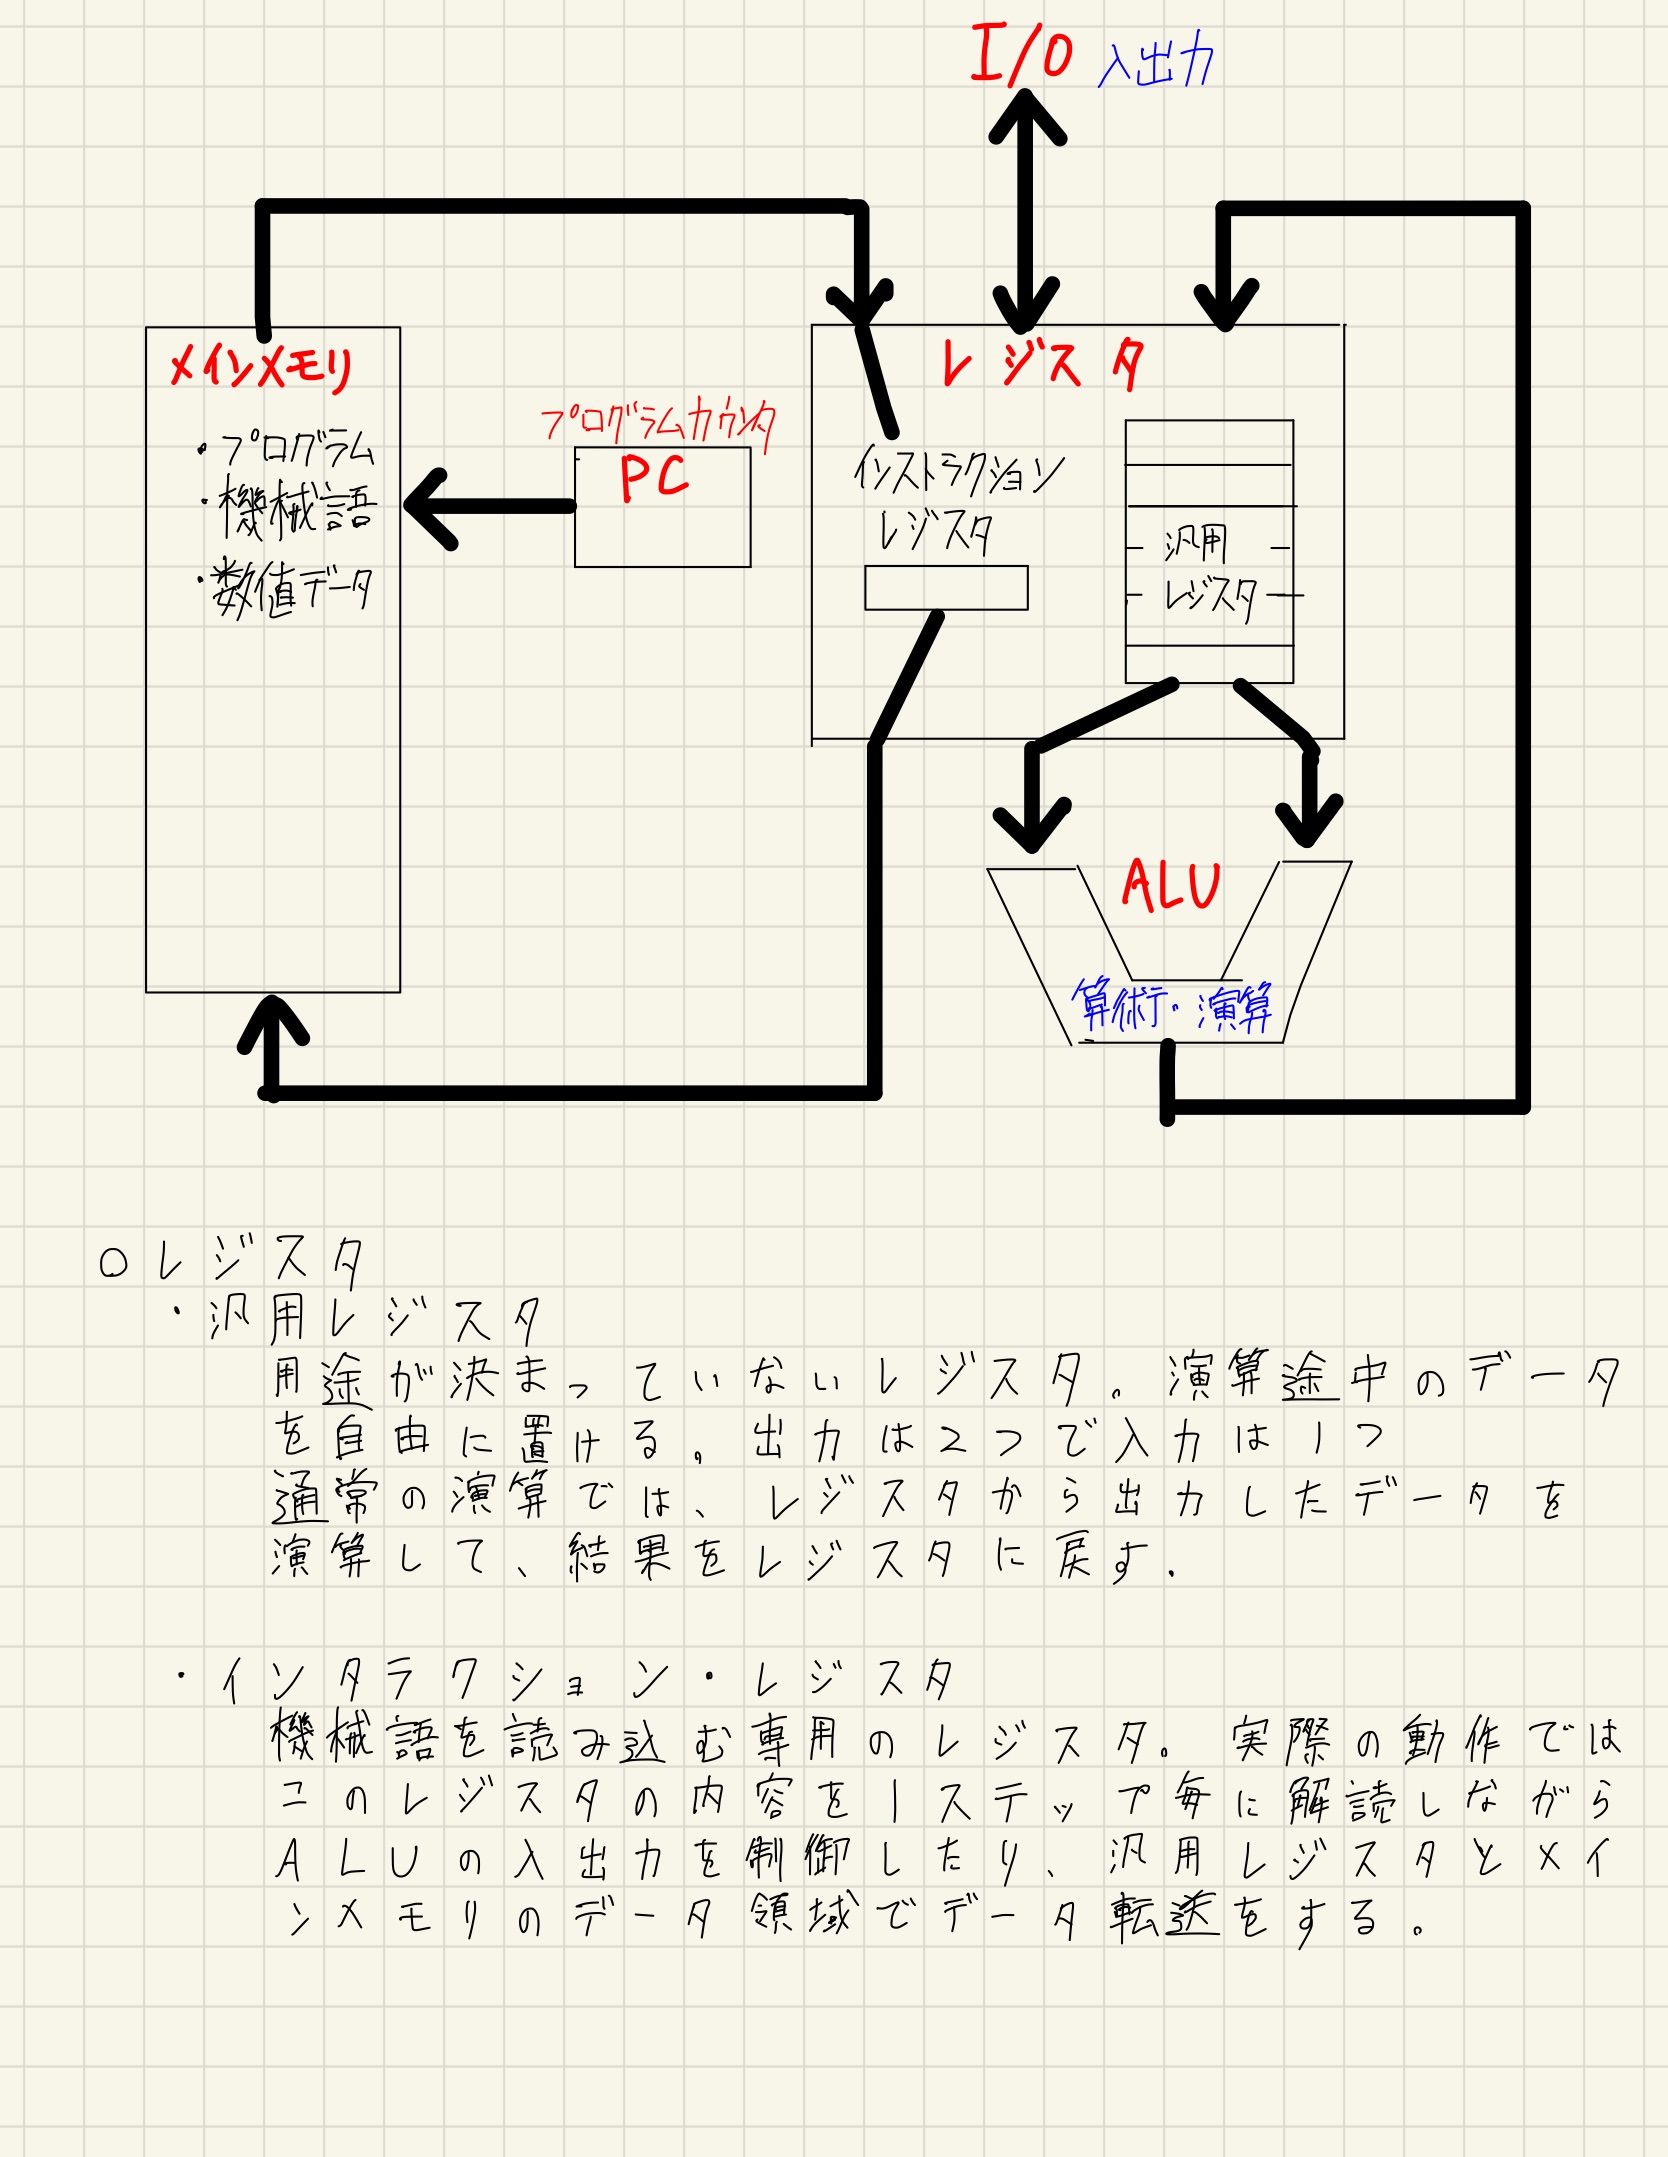 I/O 入出力
メインメモリ
・プログラム
・機械語
・数値データ
プログラムカウンタ
PC
レジスタ
インストラクション
レジスタ
汎用
レジスタ
ALU
算術・演算
○レジスタ
・汎用レジスタ
用途が決まっていないレジスタ。演算途中のデータ
を自由に置ける。出力は2つで入力は1つ
通常の演算では、レジスタから出力したデータを
演算して、結果をレジスタに戻す.
・インタラクション・レジスタ
機械語を読み込む専用のレジスタ。実際の動作では
このレジスタの内容を1ステップ毎に解読しながら
ALUの入出力を制御したり、汎用レジスタとメイ
ンメモリのデータ領域でデータ転送をする。